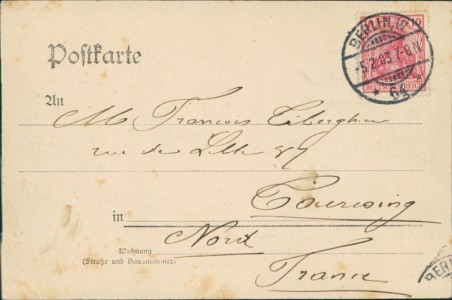 BERLIN, W.
-5.2.03.7-8N
10
Postkarte
An
M Francois Tiberghien
rue de Lille 87
Tourcoing
in
Nord
Wohnung
(Straße und Hausnummer)
France
BERLIN